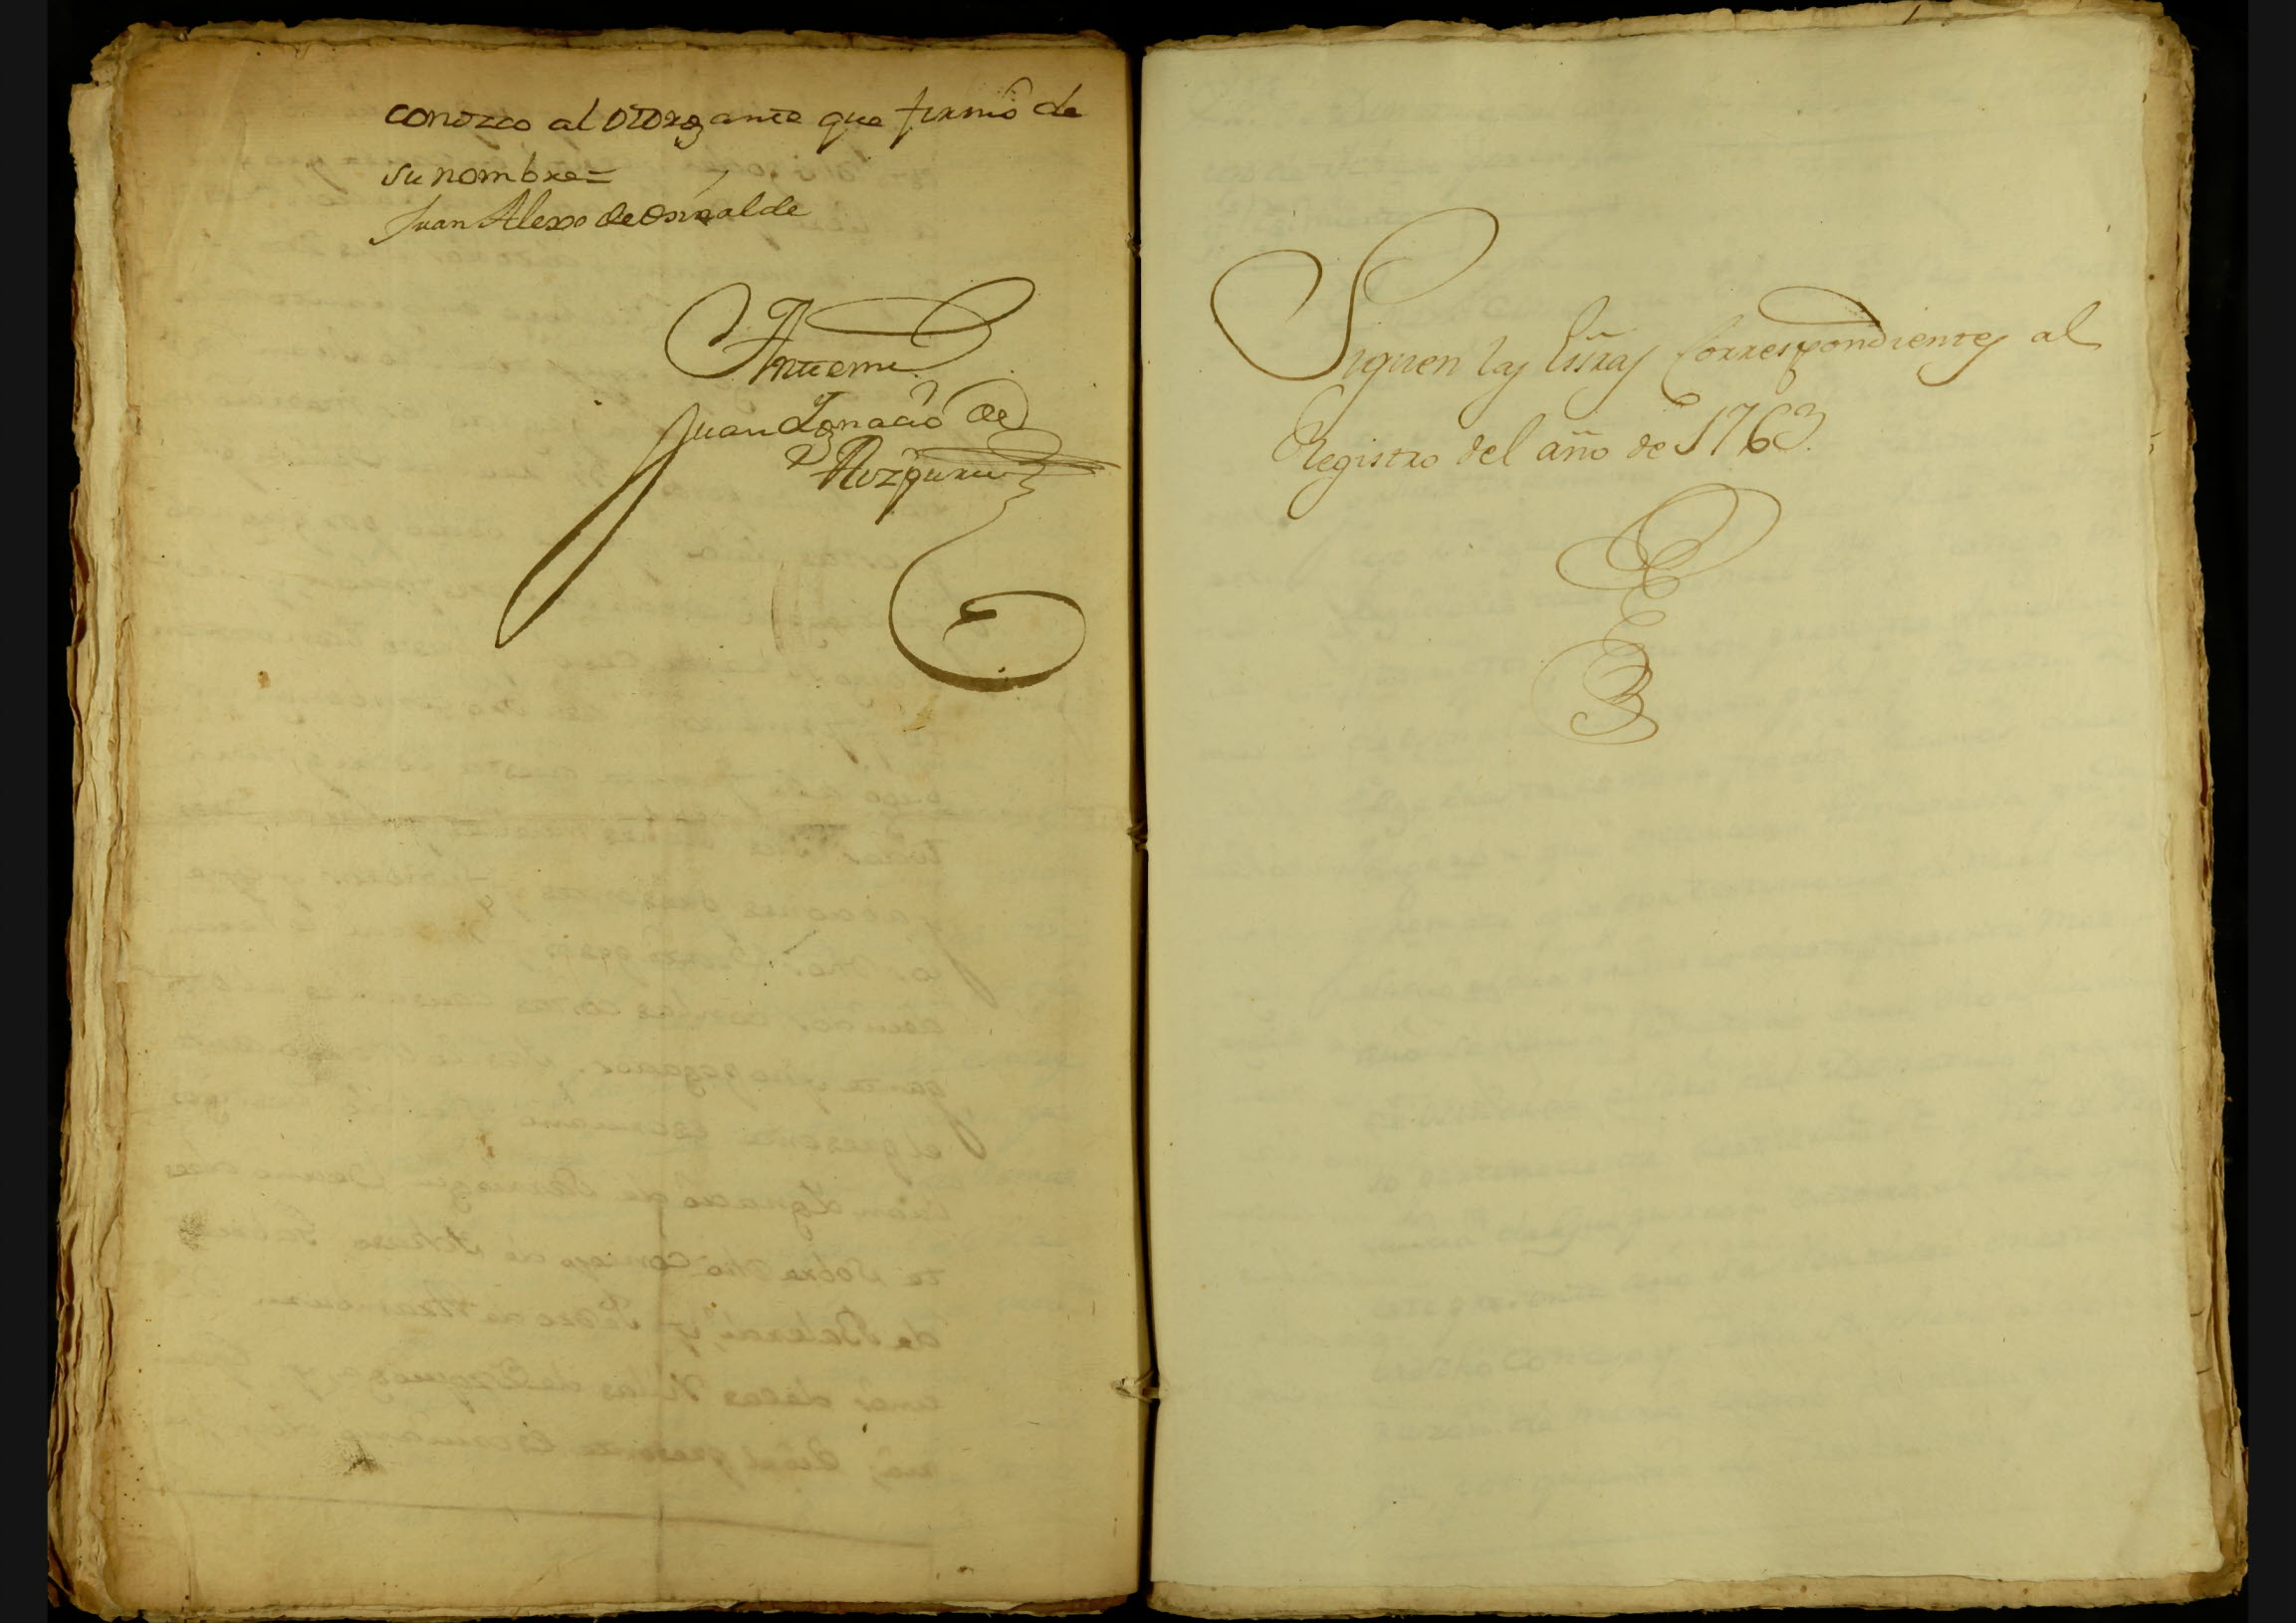 conozco al otorgante que firmó de
su nombre=
Juan Alexo de
Ante mi
Juan Ignacio de
Siguen las Essras Correspondientes al
Registro del año de 1763.